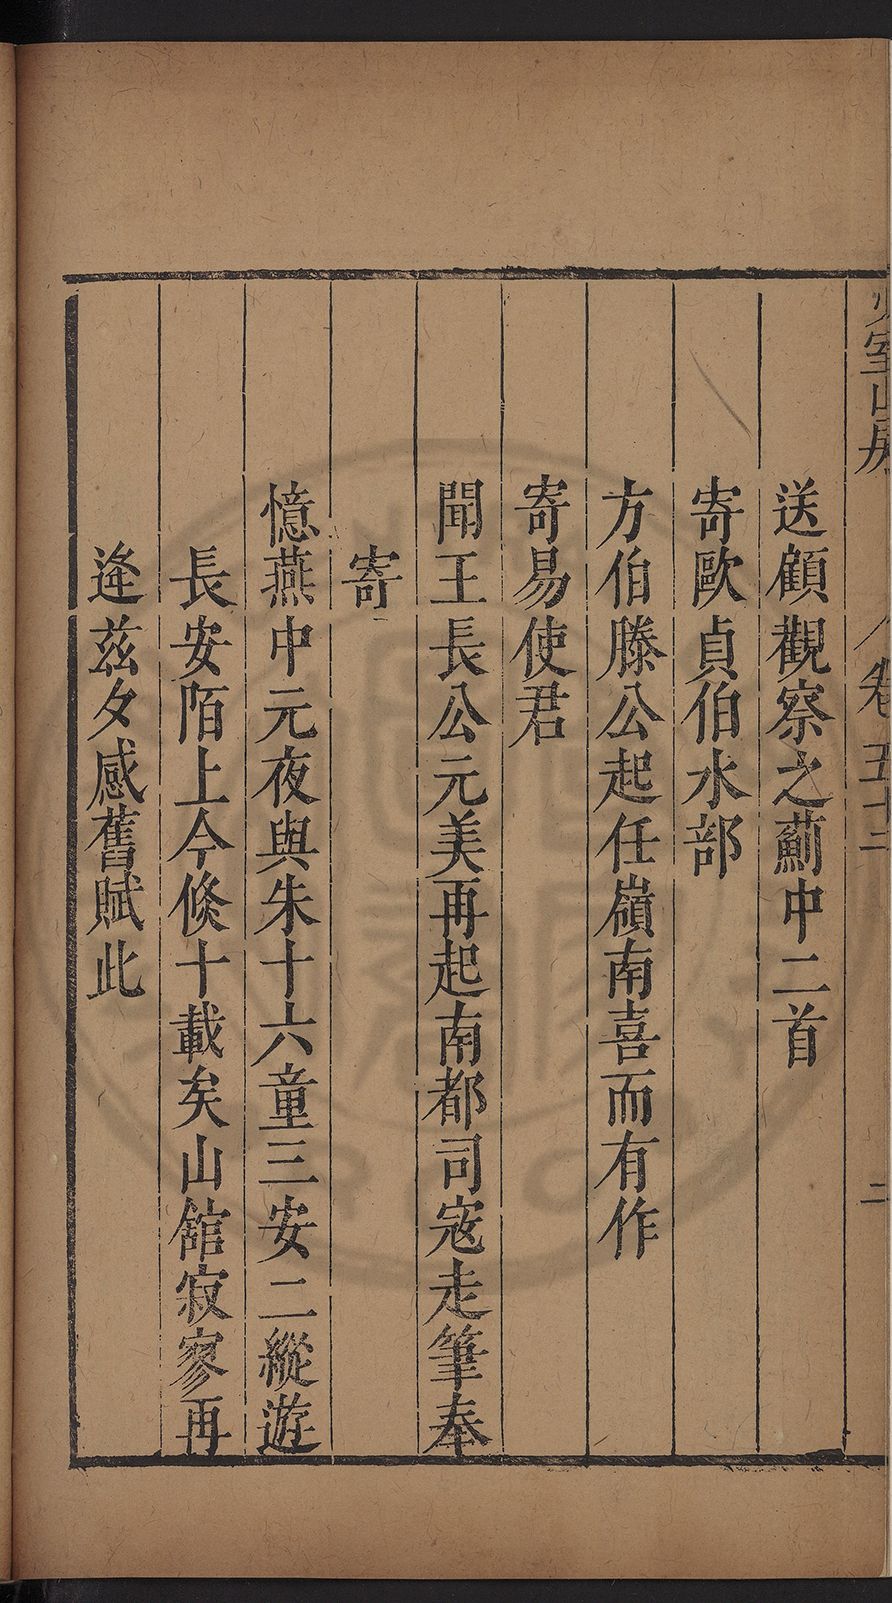 少室山房 卷五十二 二
送顧觀察之薊中二首
寄歐貞伯水部
方伯滕公起任嶺南喜而有作
寄易使君
聞王長公元美再起南都司寇走筆奉
寄
憶燕中元夜與朱十六童三安二縱遊
長安陌上今倐十載矣山舘寂寥再
逢茲夕感舊賦此